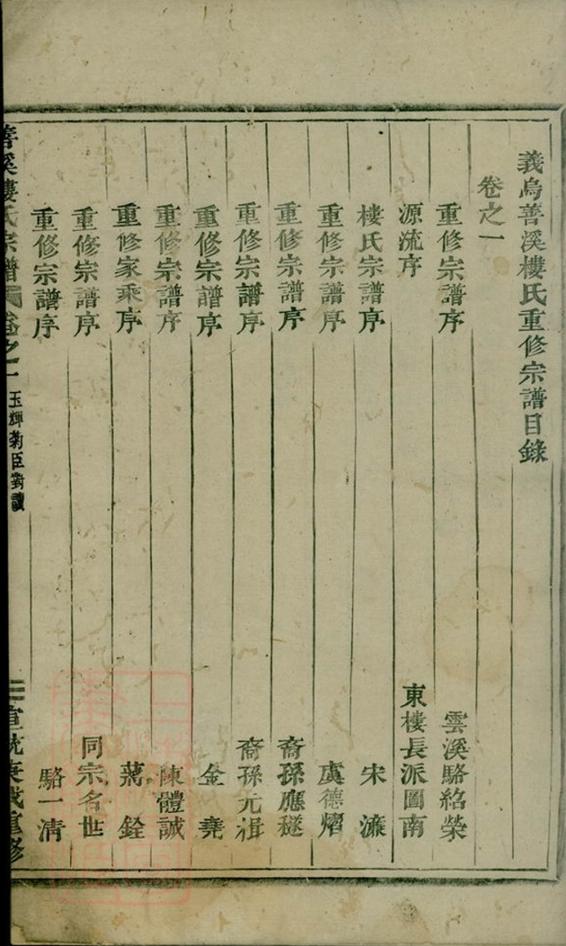 義烏善溪樓氏重修宗譜目錄
卷之一
重修宗譜序 雲溪駱紹榮
源流序 東樓長派圖南
樓氏宗譜序 宋濂
重修宗譜序 虞德熠
重修宗譜序 裔孫應𨤲
重修宗譜序 裔孫元緝
重修宗譜序 金堯
重修宗譜序 陳體誠
重修家乘序 蔣銓
重修宗譜序 同宗名世
重修宗譜序 駱一清
善溪樓氏宗譜 卷之一 玉輝菊臣對讀 一 宣統庚戌重修